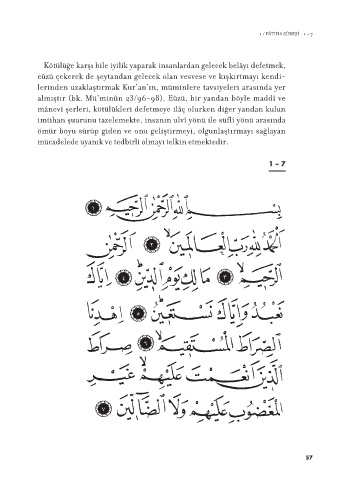 1 / FÂTİHA SÛRESİ · 1-7
Kötülüğe karşı bile iyilik yaparak insanlardan gelecek belâyı defetmek,
eûzü çekerek de şeytandan gelecek olan vesvese ve kışkırtmayı kendi-
lerinden uzaklaştırmak Kur'an'ın, müminlere tavsiyeleri arasında yer
almıştır (bk. Mü'minûn 23/96-98). Eûzü, bir yandan böyle maddî ve
mânevî şerleri, kötülükleri defetmeye ilâç olurken diğer yandan kulun
imtihan şuurunu tazelemekte, insanın ulvî yönü ile süflî yönü arasında
ömür boyu sürüp giden ve onu geliştirmeyi, olgunlaştırmayı sağlayan
mücadelede uyanık ve tedbirli olmayı telkin etmektedir.
1 – 7
بِسْمِ اللّٰهِ الرَّحْمٰنِ الرَّحِيمِ ﴿١﴾
اَلْحَمْدُ لِلّٰهِ رَبِّ الْعَالَمِينَۙ ﴿٢﴾ اَلرَّحْمٰنِ
الرَّحِيمِۙ ﴿٣﴾ مَالِكِ يَوْمِ الدِّينِۜ ﴿٤﴾ اِيَّاكَ
نَعْبُدُ وَاِيَّاكَ نَسْتَعِينُۜ ﴿٥﴾ اِهْدِنَا
الصِّرَاطَ الْمُسْتَقِيمَۙ ﴿٦﴾ صِرَاطَ
الَّذِينَ اَنْعَمْتَ عَلَيْهِمْۙ غَيْرِ
الْمَغْضُوبِ عَلَيْهِمْ وَلَا الضَّٓالِّينَ ﴿٧﴾
57